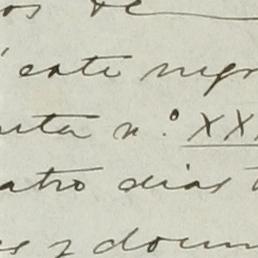 os de
este negr
uta n.º XXX
atro dias
es y docum